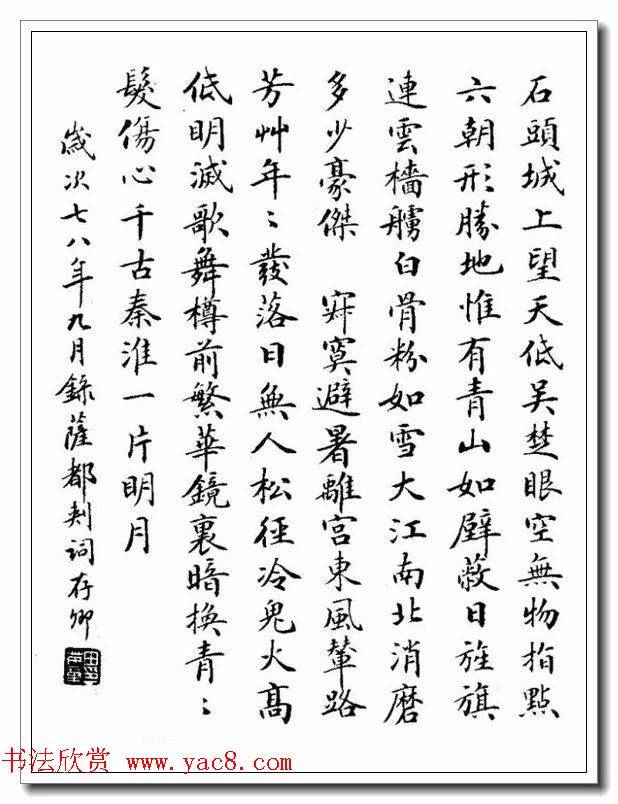 石頭城上望天低吴楚眼空無物指點
六朝形勝地惟有青山如壁蔽日旌旗
連雲檣艣白骨粉如雪大江南北消磨
多少豪傑　寂寞避暑離宫東風輦路
芳艸年〻發落日無人松徑冷鬼火高
低明滅歌舞樽前繁華鏡裏暗換青〻
髮傷心千古秦淮一片明月
歲次七八年九月錄薩都剌詞存卿
书法欣赏 www.yac8.com